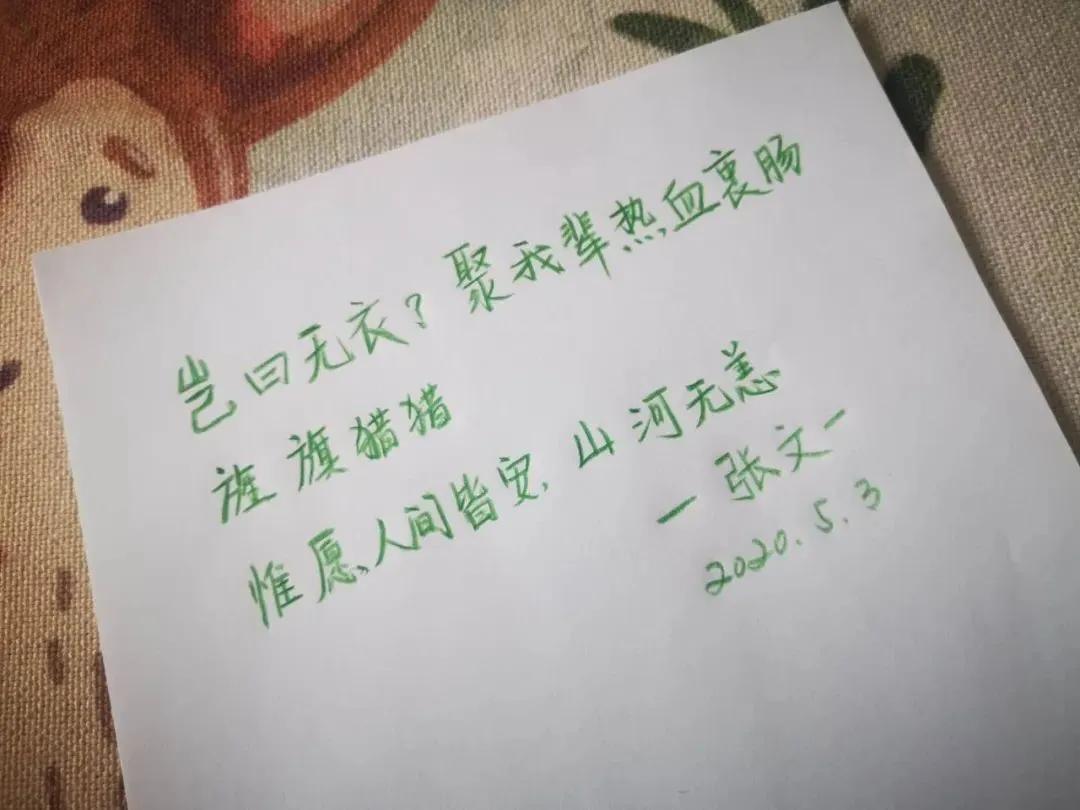 岂曰无衣？聚我辈热血衷肠
旌旗猎猎
惟愿人间皆安，山河无恙
一张文一
2020.5.3